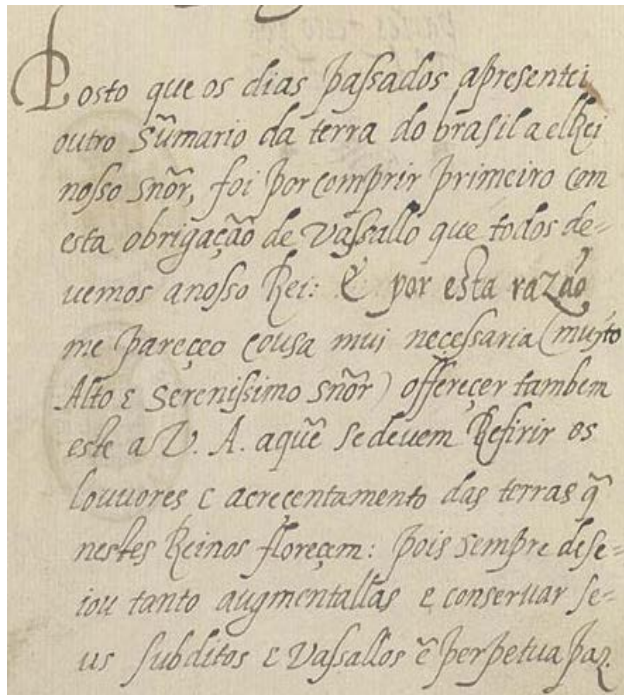 Posto que os dias passados apresentei
outro Sũmario da terra do brasil a elRei
nosso snõr, foi por comprir primeiro com
esta obrigação de Vassallo que todos de-
uemos a nosso Rei: E por esta razão
me pareçeo cousa mui neçessaria (mujto
Alto E Serenissimo snõr) offereçer tambem
este a V. A. aquẽ se deuem Refirir os
louuores e acreçentamento das terras q̃
nestes Reinos floreçem: pois sempre dese-
iou tanto augmentallas e conseruar se-
us subditos E Vassallos ẽ perpetua paz.